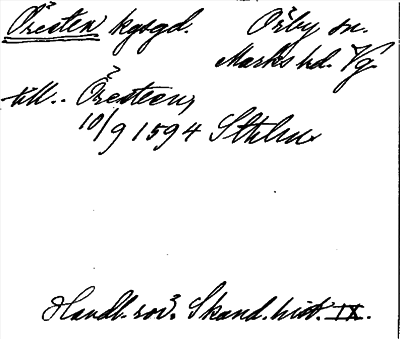 Öresten kgsgd. Örby sn.
Marks hd. Vg.
till.. Öresteen,
10/9 1594 Sthlm
Handl. rör. Skand. hist. IX.